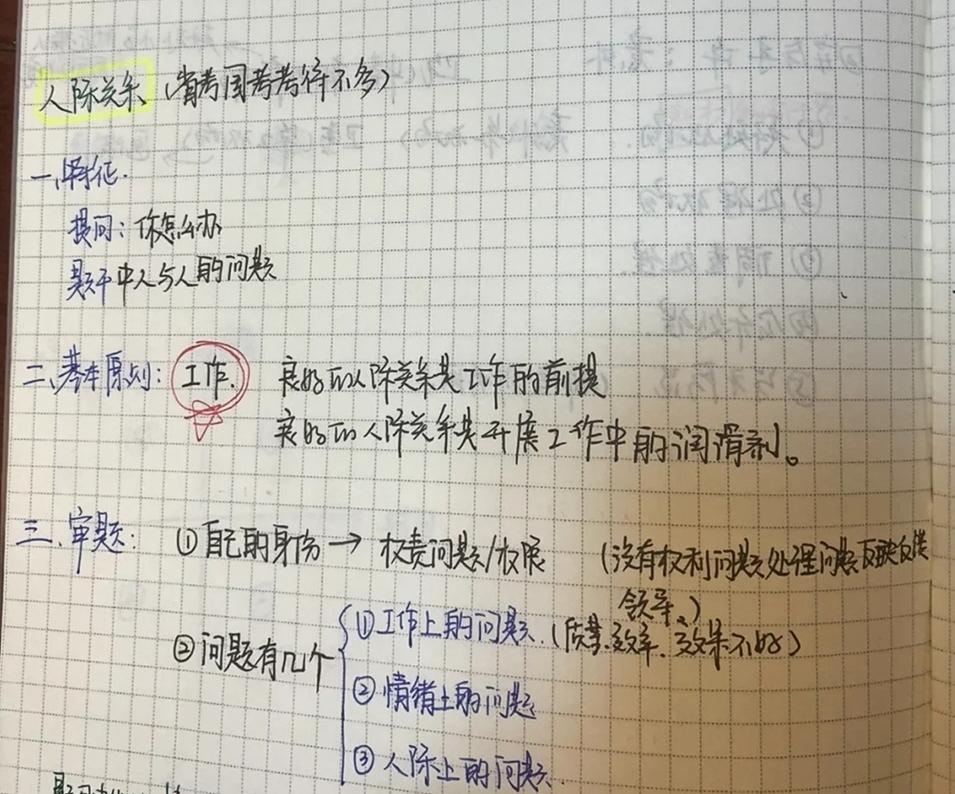 人际关系（省考国考考得不多）
一、特征.
提问：你怎么办
题干中人与人的问题
二、基本原则：工作. 良好的人际关系是工作的前提
良好的人际关系是开展工作中的润滑剂。
三、审题：①自己的身份→权责问题/权限 （没有权利问题处理问题反映反馈
领导、）
②问题有几个 ①工作上的问题.（质量.效率.效果不好）
②情绪上的问题
③人际上的问题.